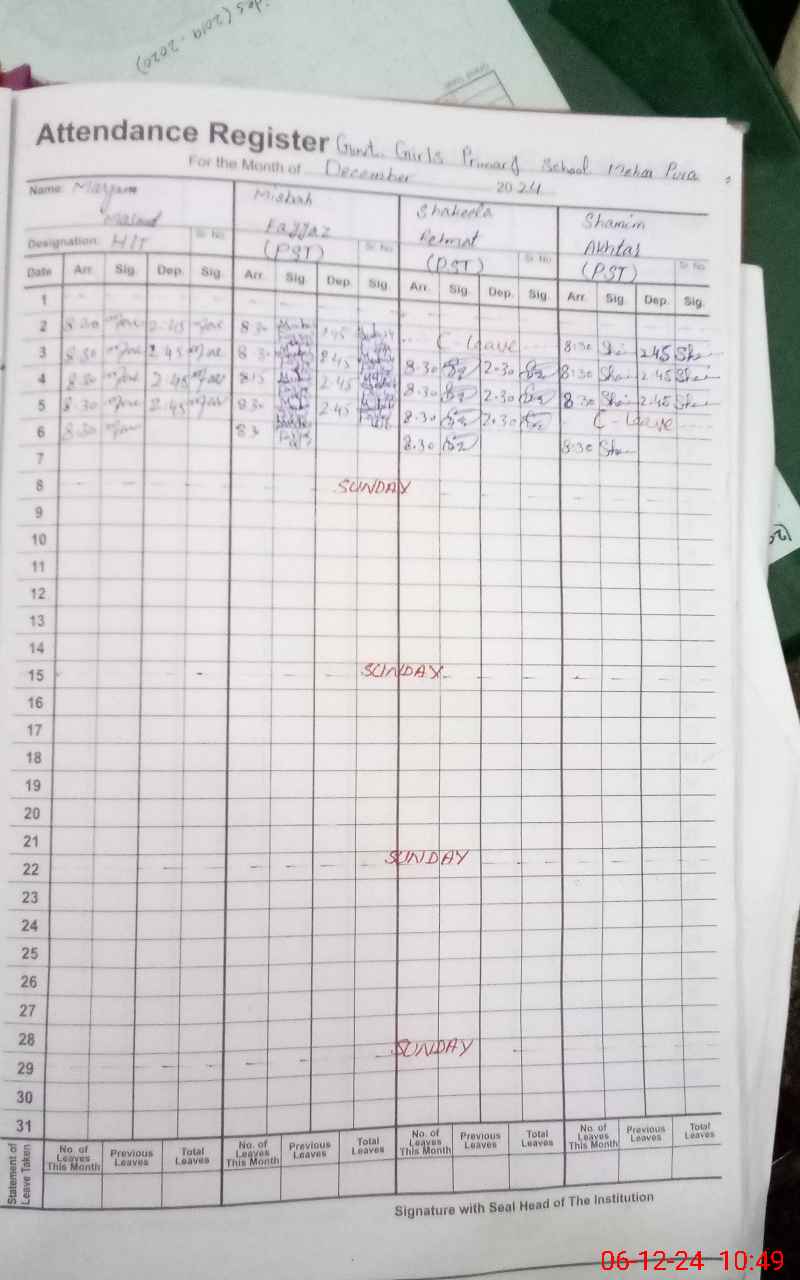 des (2019 - 2020)
Attendance Register Govt. Girls Primary School Mehar Pura
For the Month of December 2024
Name: Maryam Misbah Shakeela Shamim
Masood Fayyaz Rehmat Akhtar
Designation: HIT Sr. No. (PST) Sr. No. (PST) Sr. No. (PST) Sr. No.
Date Arr. Sig. Dep. Sig. Arr. Sig. Dep. Sig. Arr. Sig. Dep. Sig. Arr. Sig. Dep. Sig.
1
2 8.30 2.45 8.30 2.45 C-leave 8:30 Sha 2.45 Sha
3 8.30 2.45 8.30 2.45 8.30 2.30 8:30 Sha 2.45 Sha
4 8.30 2.45 8.15 2.45 8.30 2.30 8.30 Sha 2.45 Sha
5 8.30 2.45 8.30 2.45 8.30 2.30 C-leave
6 8.30 8.3 8.30 8.30 Sha
7
8 SUNDAY
9
10
11
12
13
14
15 SUNDAY
16
17
18
19
20
21
22 SUNDAY
23
24
25
26
27
28
29 SUNDAY
30
31
Statement of Leave Taken No. of Leaves This Month Previous Leaves Total Leaves No. of Leaves This Month Previous Leaves Total Leaves No. of Leaves This Month Previous Leaves Total Leaves No. of Leaves This Month Previous Leaves Total Leaves
Signature with Seal Head of The Institution
06-12-24 10:49